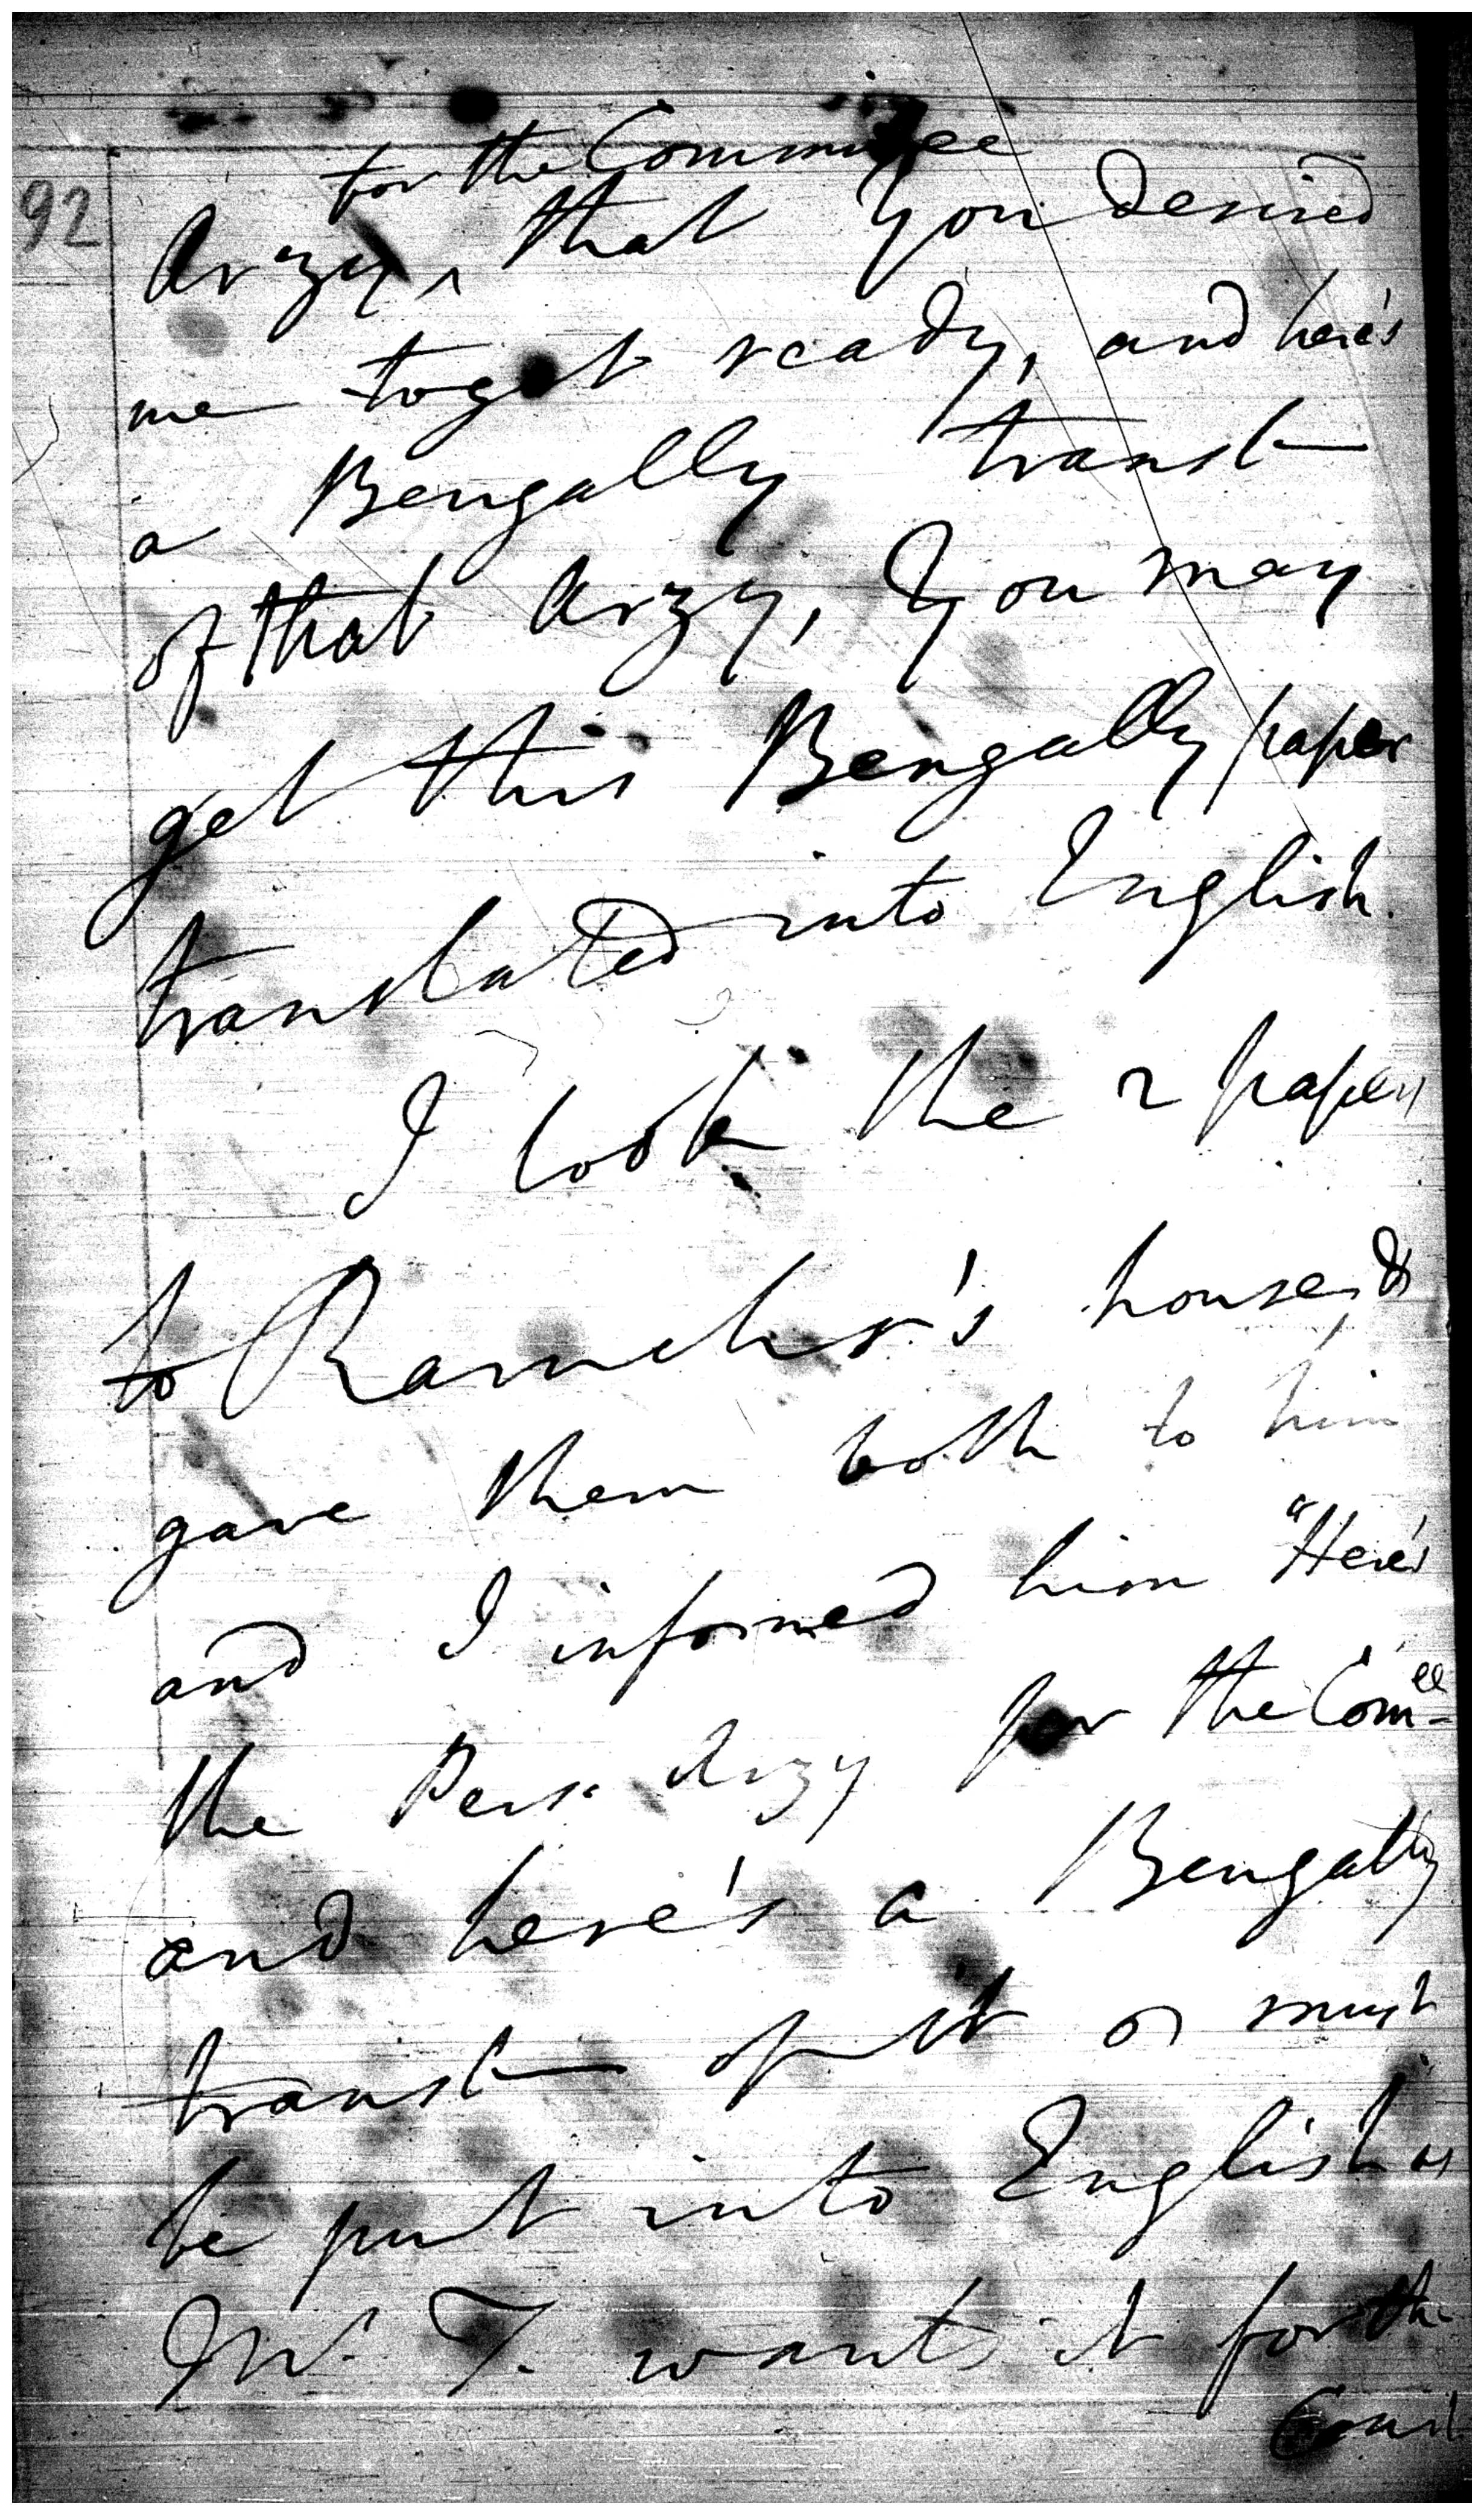 92
for the Committee
Arzy ^ that you desired
me to get ready, and here's
a Bengally transl
of that Arzy, you may
get this Bengally paper
translated into English.
I took the 2 papers
to Ramchr's house, &
gave them both to him
and I informed him "Here's
the Pers. Arzy for the Com.ee
and here's a Bengally
transl of it & must
be put into English as
Mr. T. wants it for the